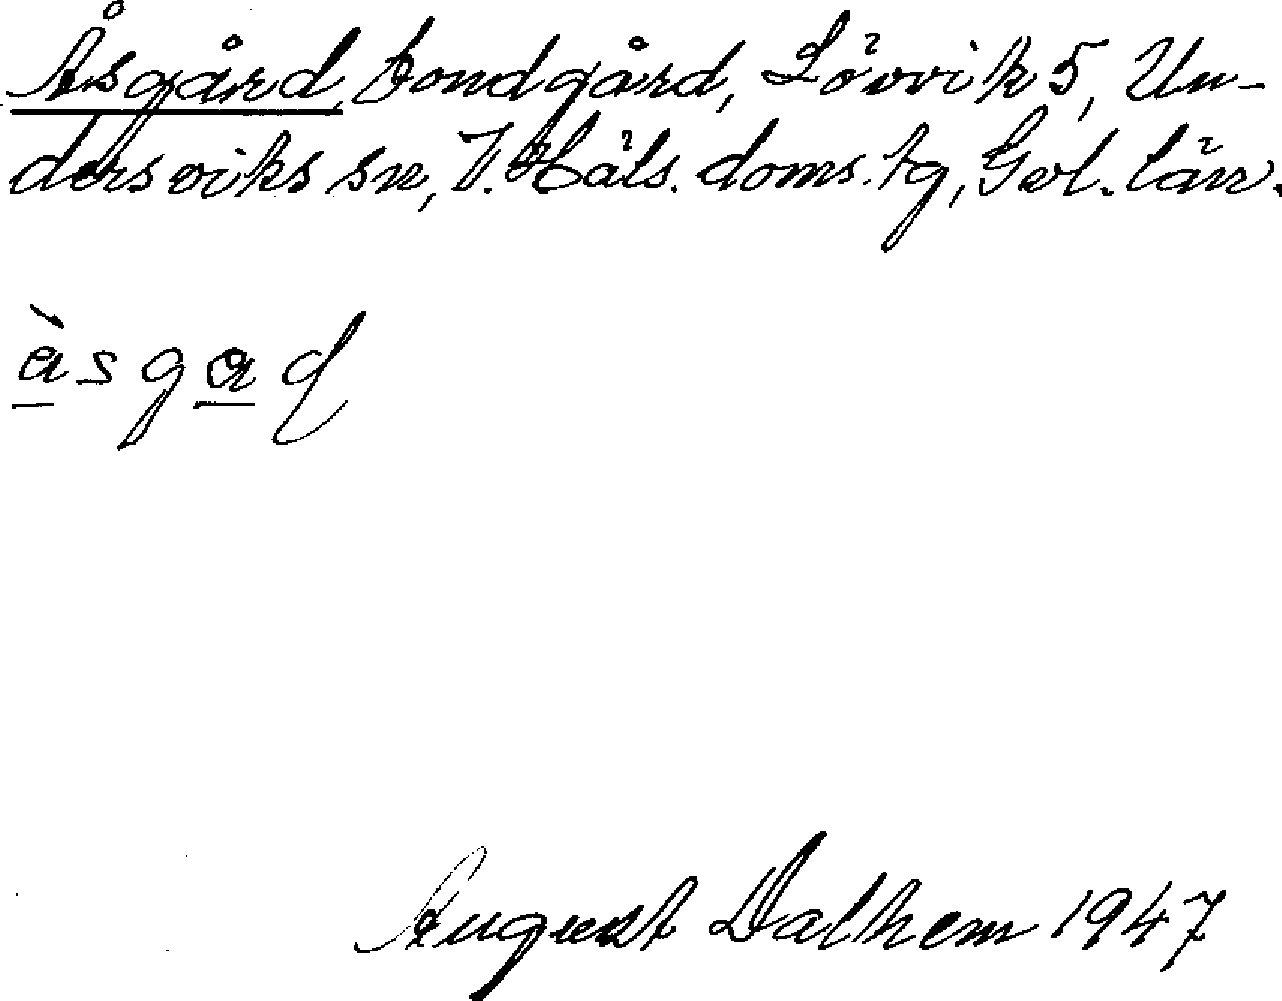 Åsgård, bondgård, Lövvik 5, Un-
dersviks sn, V. Häls. doms. tg, Gevl. län.
àsgad
August Dalhem 1947